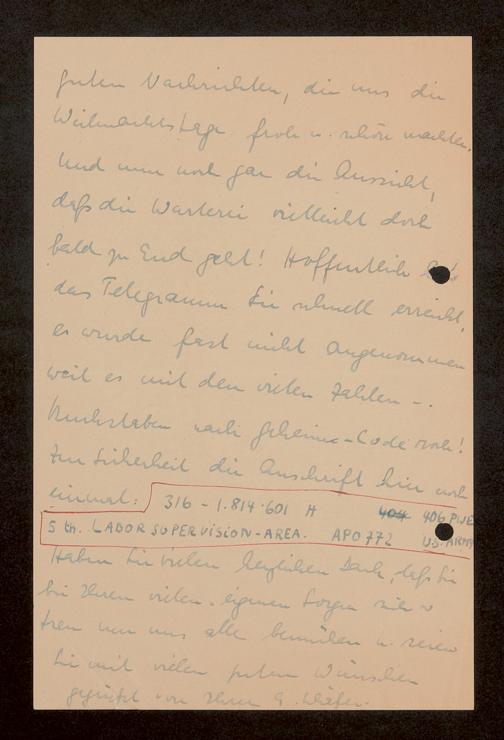 guten Nachrichten, die uns die
Weihnachtstage froh u. schön machten.
Und nun noch gar die Aussicht,
daß die Warterei vielleicht doch
bald zu End geht! Hoffentlich hat
das Telegramm Sie schnell erreicht,
es wurde fast nicht angenommen
weil es mit den vielen Zahlen -.
Buchstaben nach Geheim-Code roch!
Zur Sicherheit die Anschrift hier noch
einmal: 316 - 1.814.601 H 404 406 PWE
5 th. LABOR SUPERVISION-AREA. APO 772 U.S. ARMY
Haben Sie vielen herzlichen Dank, daß Sie
bei Ihren vielen eigenen Sorgen sich so
treu um uns alle bemühen u. seien
Sie mit vielen guten Wünschen
gegrüßt von Ihrer